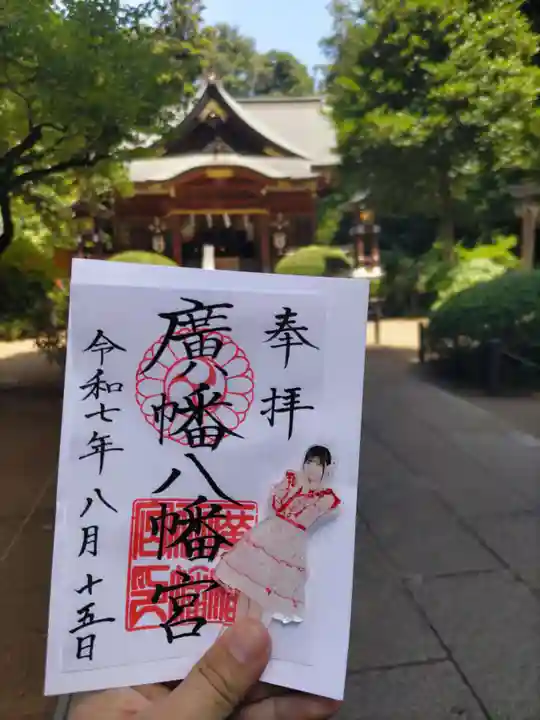 奉拝
廣八幡八幡宮
令和七年八月十五日